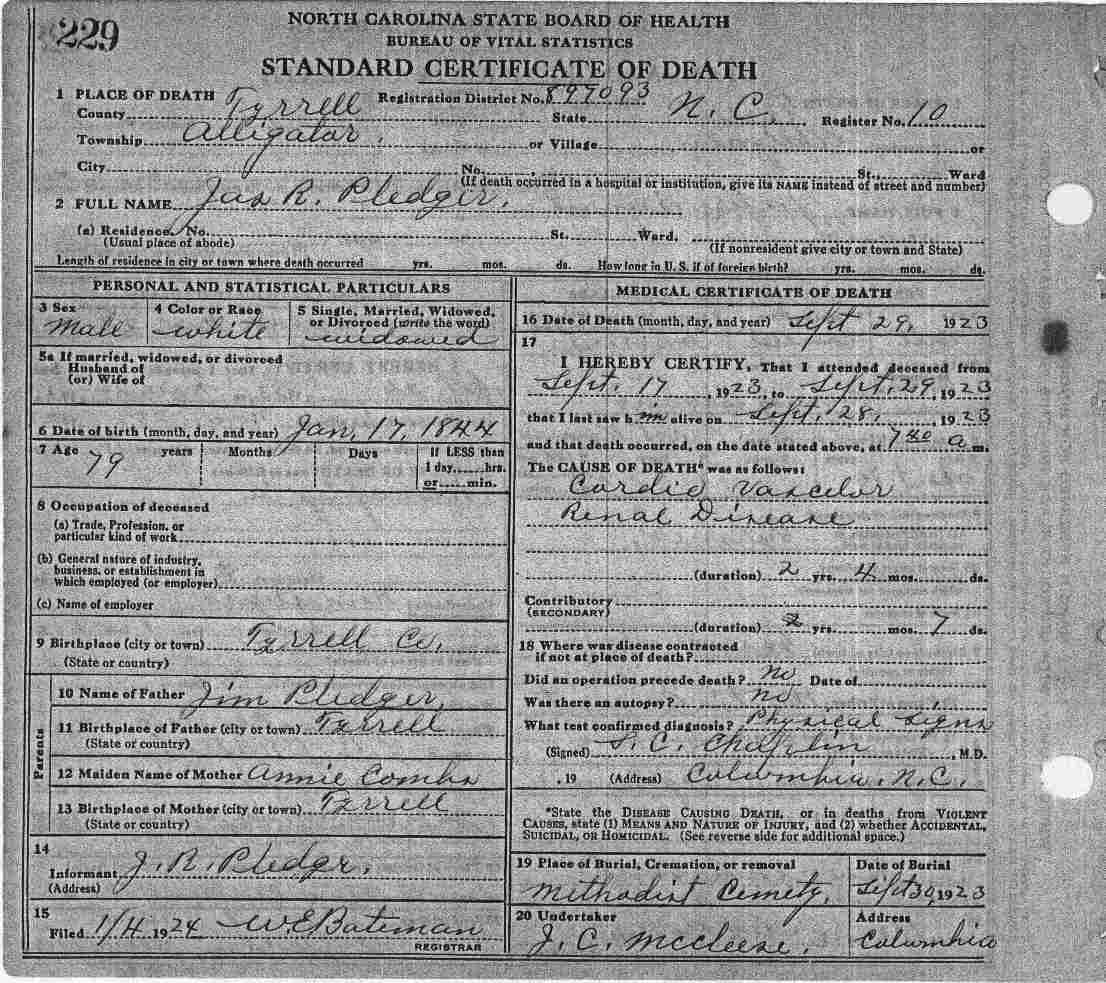 229
NORTH CAROLINA STATE BOARD OF HEALTH
BUREAU OF VITAL STATISTICS
STANDARD CERTIFICATE OF DEATH
1 PLACE OF DEATH Registration District No. 897093
County Tyrrell State N. C. Register No. 10
Township Alligator. or Village or
City No. , St., Ward
(If death occurred in a hospital or institution, give its NAME instead of street and number)
2 FULL NAME Jas R. Pledger.
(a) Residence. No. St. Ward.
(Usual place of abode) (If nonresident give city or town and State)
Length of residence in city or town where death occurred yrs. mos. ds. How long in U. S. if of foreign birth? yrs. mos. ds.
PERSONAL AND STATISTICAL PARTICULARS
3 Sex 4 Color or Race 5 Single, Married, Widowed,
or Divorced (write the word)
Male white widowed
5a If married, widowed, or divorced
Husband of
(or) Wife of
6 Date of birth (month, day, and year) Jan. 17, 1844
7 Age 79 years Months Days If LESS than
1 day, hrs.
or min.
8 Occupation of deceased
(a) Trade, Profession, or
particular kind of work
(b) General nature of industry,
business, or establishment in
which employed (or employer)
(c) Name of employer
9 Birthplace (city or town) Tyrrell Co.
(State or country)
Parents
10 Name of Father Jim Pledger,
11 Birthplace of Father (city or town) Tyrrell
(State or country)
12 Maiden Name of Mother Annie Combs
13 Birthplace of Mother (city or town) Tyrrell
(State or country)
14
Informant J. R. Pledgr.
(Address)
15
Filed 1/4 1924 W.E Bateman
REGISTRAR
MEDICAL CERTIFICATE OF DEATH
16 Date of Death (month, day, and year) Sept 29, 1923
17
I HEREBY CERTIFY, That I attended deceased from
Sept. 17, 1923, to Sept. 29, 1923
that I last saw h im alive on Sept. 28, 1923
and that death occurred, on the date stated above, at 7 40 a m.
The CAUSE OF DEATH* was as follows:
Cardio Vascelor
Renal Disease
(duration) 2 yrs. 4 mos. ds.
Contributory
(SECONDARY)
(duration) 2 yrs. mos. 7 ds.
18 Where was disease contracted
if not at place of death?
Did an operation precede death? no Date of
Was there an autopsy? no
What test confirmed diagnosis? Physical Signs
(Signed) S. C. Chaplin, M.D.
, 19 (Address) Columbia, N.C.
*State the DISEASE CAUSING DEATH, or in deaths from VIOLENT
CAUSES, state (1) MEANS AND NATURE OF INJURY, and (2) whether ACCIDENTAL,
SUICIDAL, OR HOMICIDAL. (See reverse side for additional space.)
19 Place of Burial, Cremation, or removal Date of Burial
Methodist Cemety, Sept 30, 1923
20 Undertaker Address
J. C. McCleese. Columbia